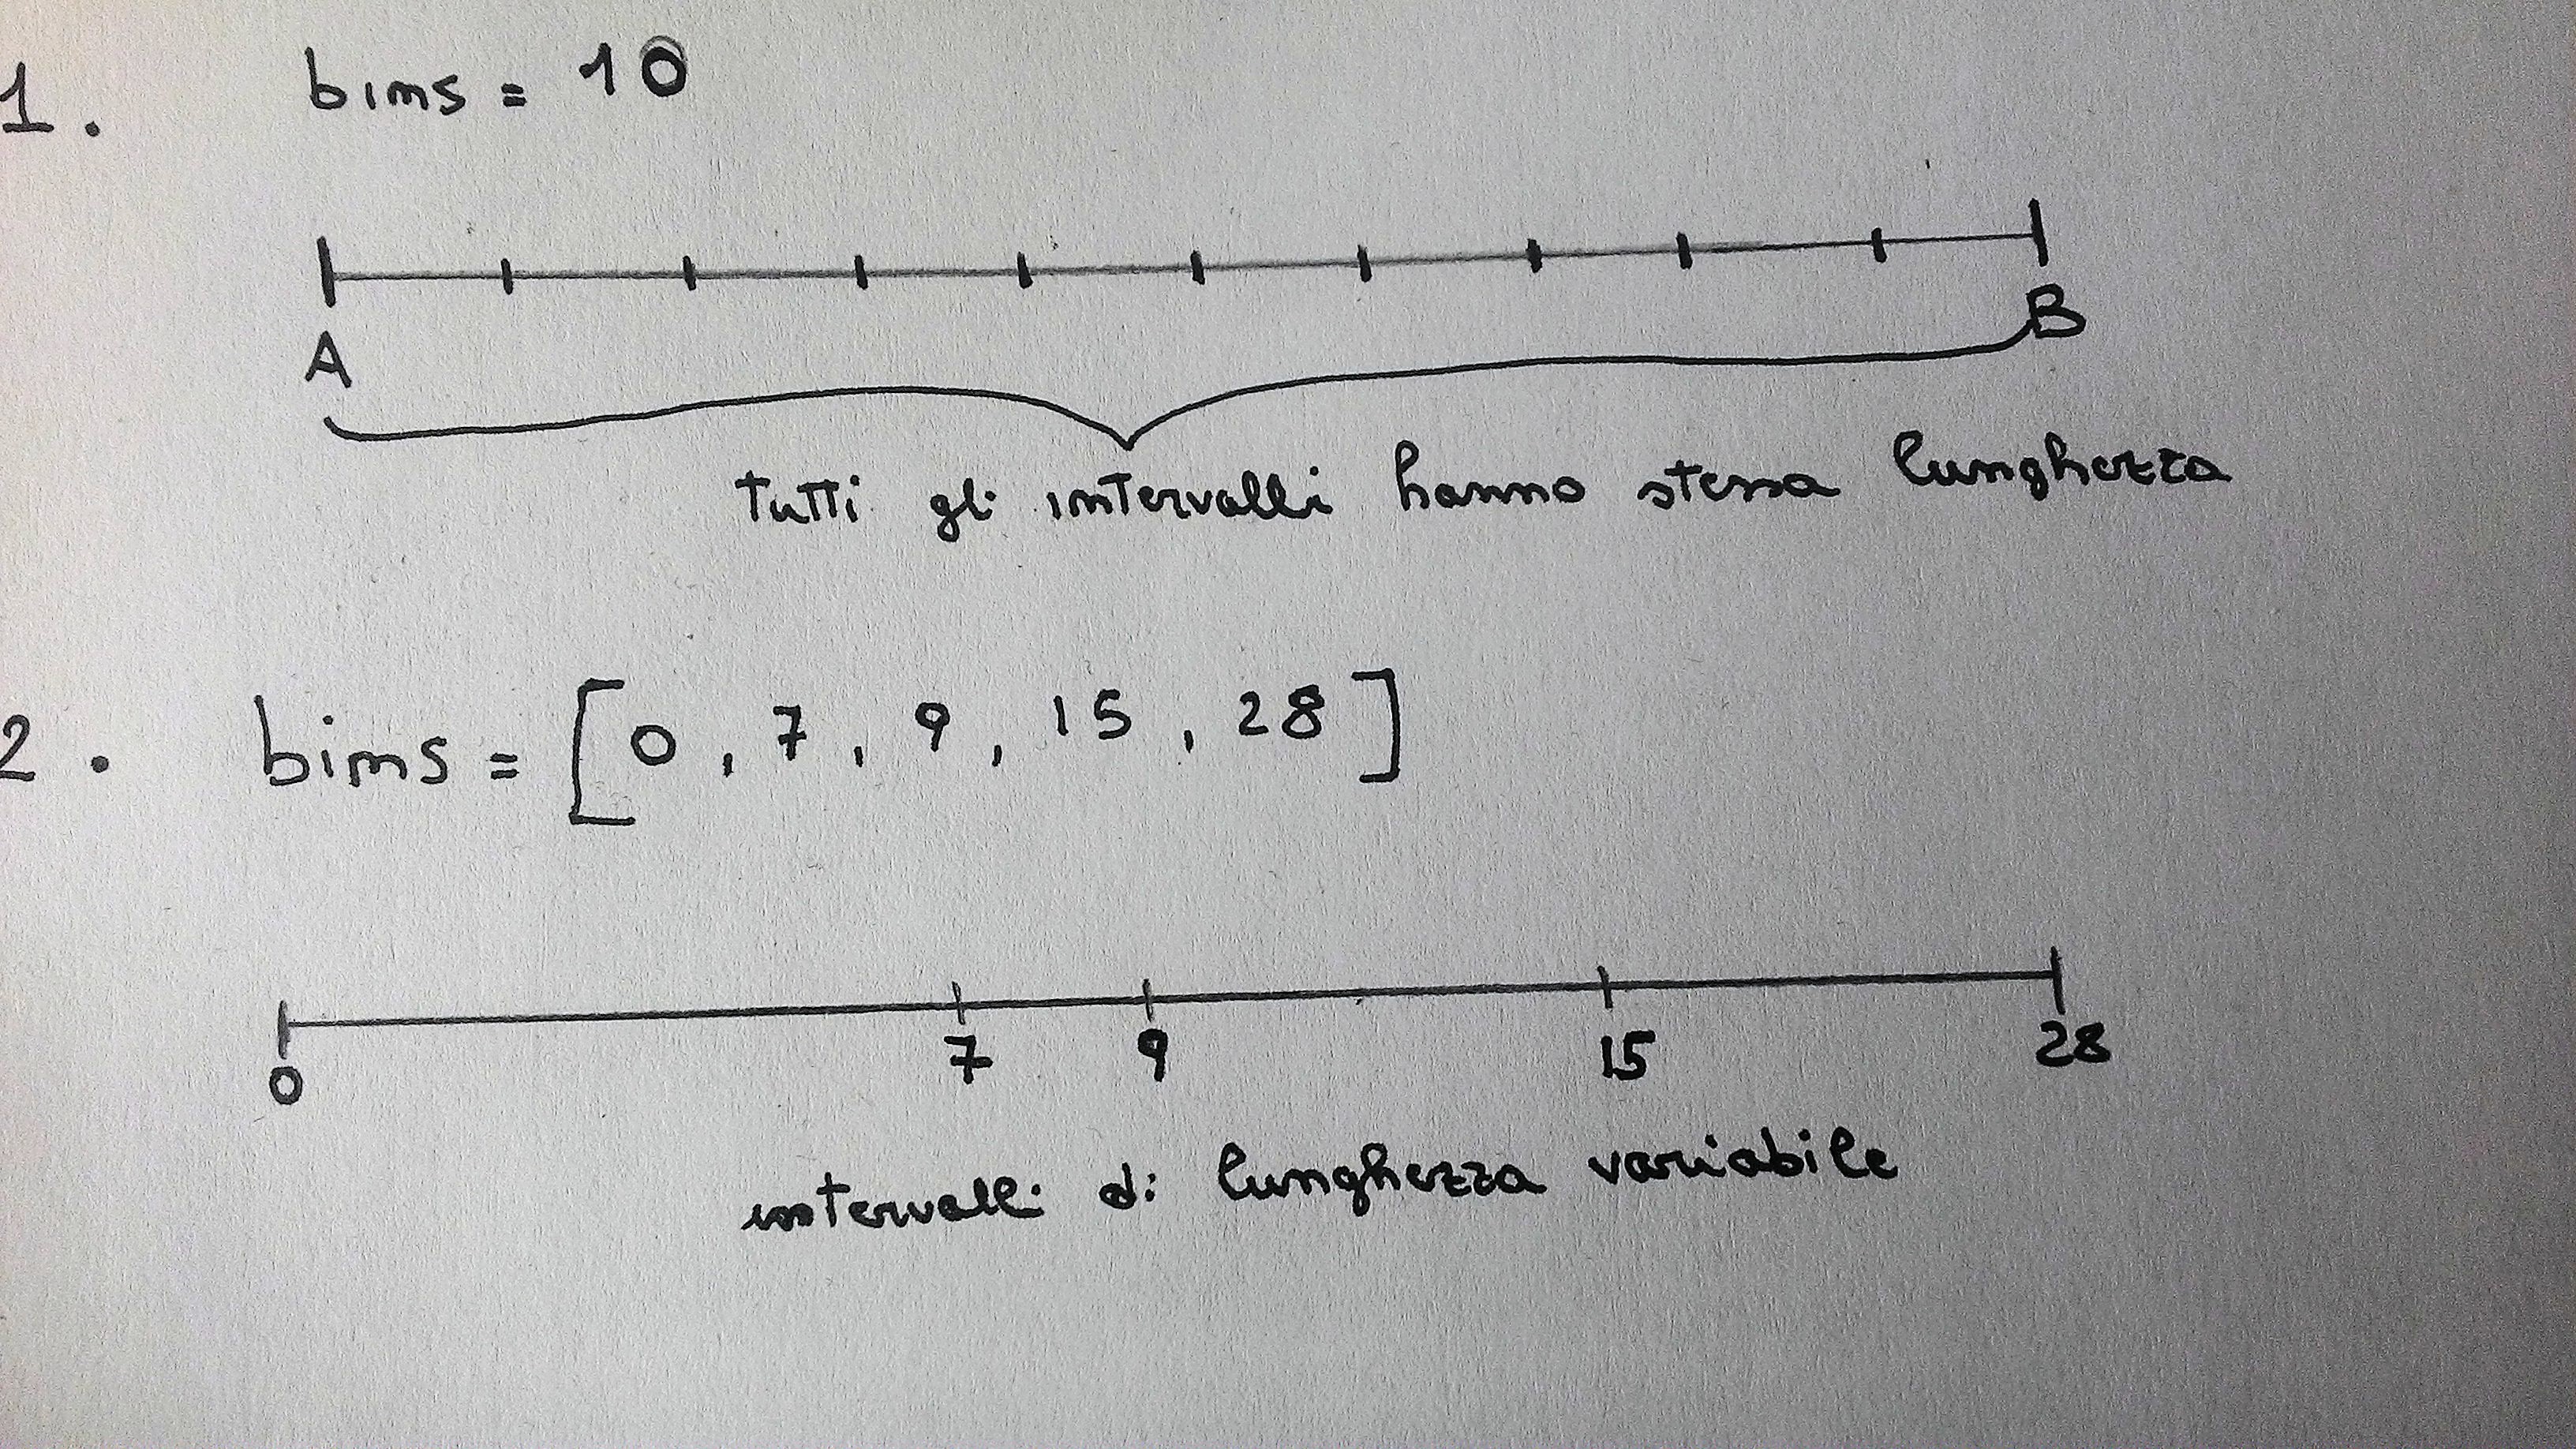 1. bins = 10
A B
tutti gli intervalli hanno stessa lunghezza
2. bins = [0, 7, 9, 15, 28]
0 7 9 15 28
intervalli di lunghezza variabile